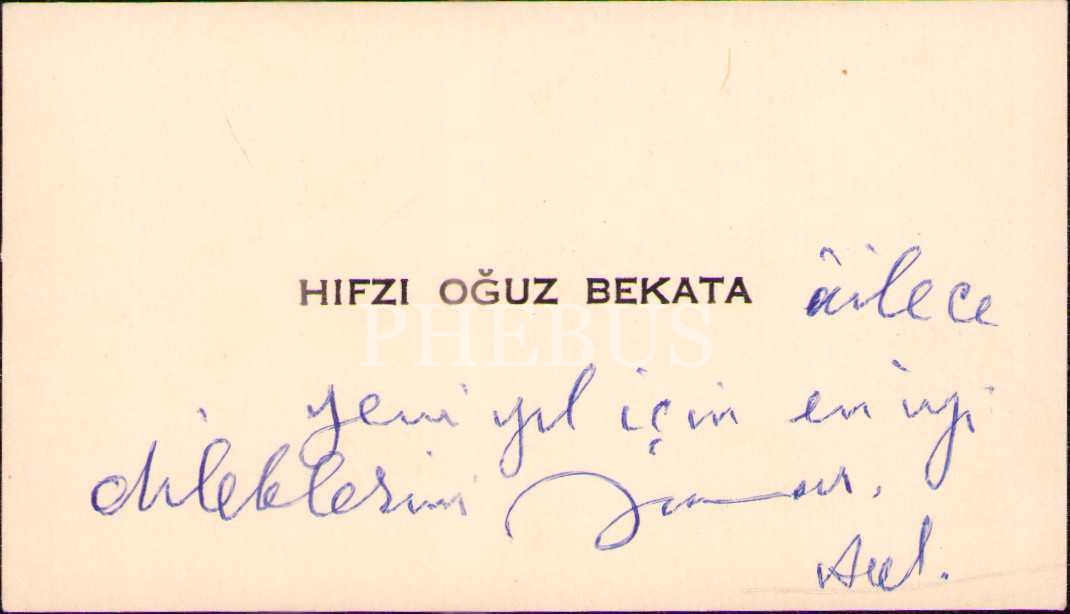 HIFZI OĞUZ BEKATA âilece
PHEBUS
yeni yıl için en iyi
dileklerini sunar.